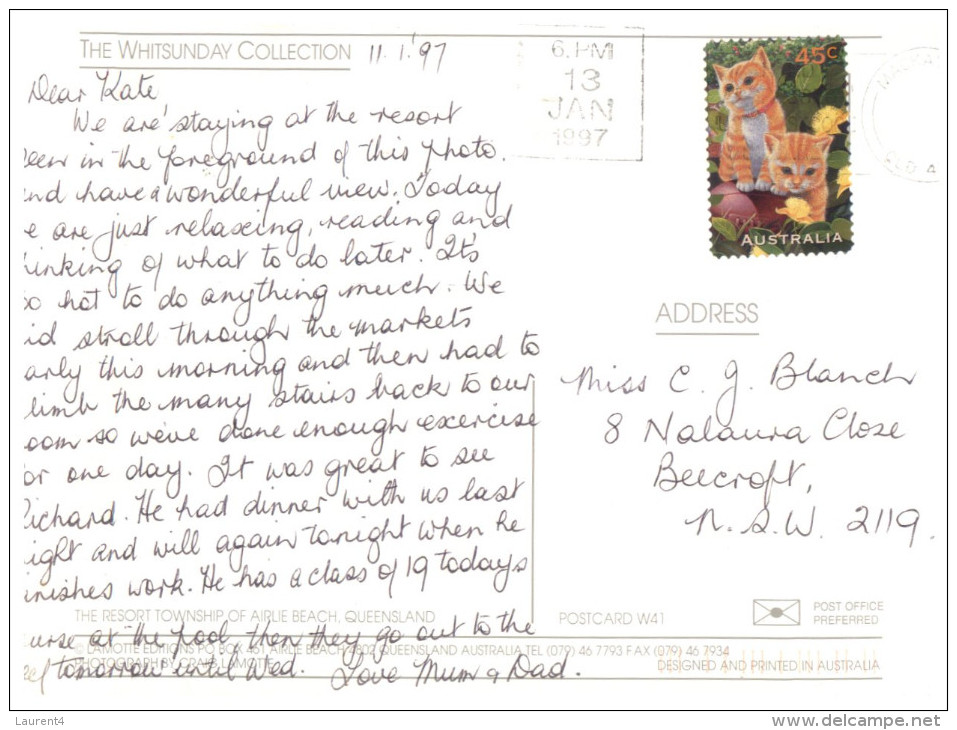 THE WHITSUNDAY COLLECTION
11.1.'97
Dear Kate,
We are staying at the resort
een in the foreground of this photo.
nd have a wonderful view. Today
e are just relaxing, reading and
inking of what to do later. It's
o hot to do anything much. We
id stroll through the markets
arly this morning and then had to
limb the many stairs back to our
oom so we've done enough exercise
or one day. It was great to see
Richard. He had dinner with us last
ight and will again tonight when he
inishes work. He has a class of 19 todays
urse at the pool then they go out to the
eef tomorrow until Wed. Love Mum & Dad.
6. PM
13
JAN
1997
45c
AUSTRALIA
ADDRESS
Miss C. J. Blanch
8 Nalaura Close
Beecroft,
N.S.W. 2119.
THE RESORT TOWNSHIP OF AIRLIE BEACH, QUEENSLAND
POSTCARD W41
POST OFFICE
PREFERRED
© LAMOTTE EDITIONS PO BOX 461 AIRLIE BEACH 4802 QUEENSLAND AUSTRALIA TEL (079) 46 7793 FAX (079) 46 7934
PHOTOGRAPH BY CRAIG LAMOTTE
DESIGNED AND PRINTED IN AUSTRALIA
Laurent4
www.delcampe.net